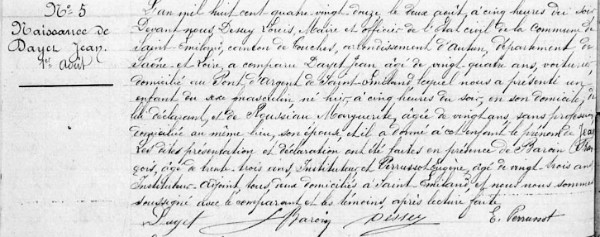 N° 5
Naissance de
Dayet Jean.
1er Août
L'an mil huit cent quatre-vingt-onze le deux août, à cinq heures du soir
Devant nous Dessey Louis, Maire et officier de l'Etat civil de la commune de
Saint-Emiland, canton de Couches, arrondissement d'Autun, département de
Saône et Loire, a comparu Dayet Jean, âgé de vingt quatre ans,
domicilié au Pont d'Argent de Saint-Emiland lequel nous a présenté un
enfant du sexe masculin né hier, à cinq heures du soir, en son domicile, de
lui déclarant, et de Marguerite, âgée de vingt ans, sans profession,
domiciliée au même lieu, son épouse, et il a donné à l'enfant le prénom de Jean
Les dites présentation et déclaration ont été faites en présence de Baroin
âgé de trente-trois ans, Instituteur, et Perrusson Eugène, âgé de vingt-trois ans
Instituteur-Adjoint, tous deux domiciliés à Saint-Emiland et nous nous sommes
soussigné avec le comparant et les témoins, après lecture faite.
Baroin